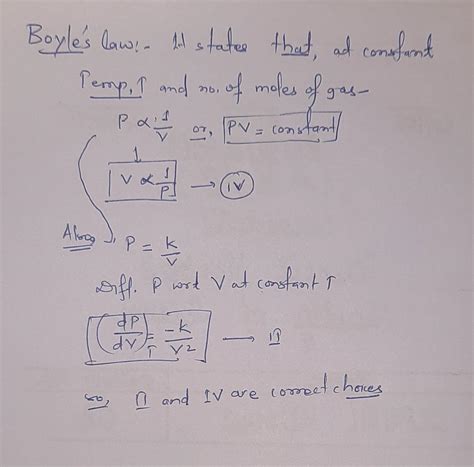 Boyle's law:- It states that, at constant
Temp, T and no. of moles of gas-
P ∝ 1/V or, PV = constant
V ∝ 1/P → IV
Also, P = k/V
Diff. P wrt V at constant T
(dP/dV)_T = -k/V² — II
so, II and IV are correct choices